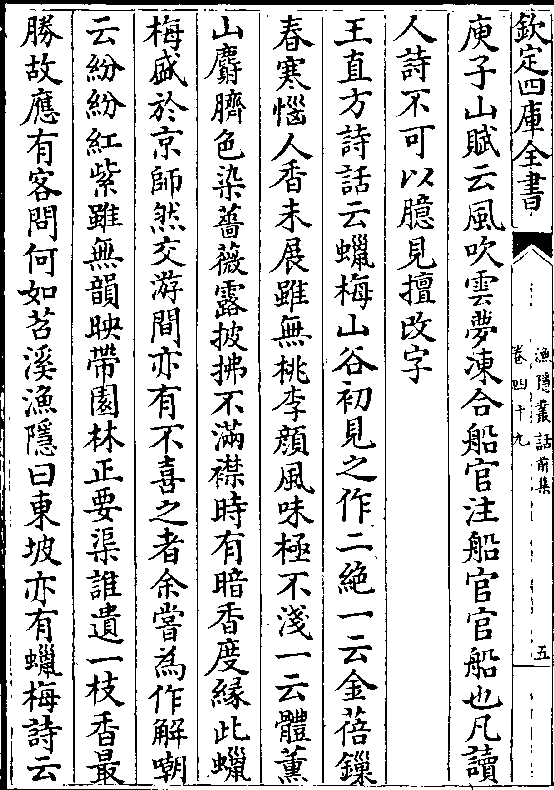 欽定四庫全書
漁隱叢話前集
卷四十九
五
庾子山賦云風吹雲夢凍合船官注船官官船也凡讀
人詩不可以臆見擅改字
王直方詩話云蠟梅山谷初見之作二絶一云金蓓鏁
春寒惱人香未展雖無桃李顔風味極不淺一云體薰
山麝臍色染薔薇露披拂不滿襟時有暗香度緣此蠟
梅盛於京師然交游間亦有不喜之者余嘗為作解嘲
云紛紛紅紫雖無韻映帶園林正要渠誰遣一枝香最
勝故應有客問何如苕溪漁隱曰東坡亦有蠟梅詩云